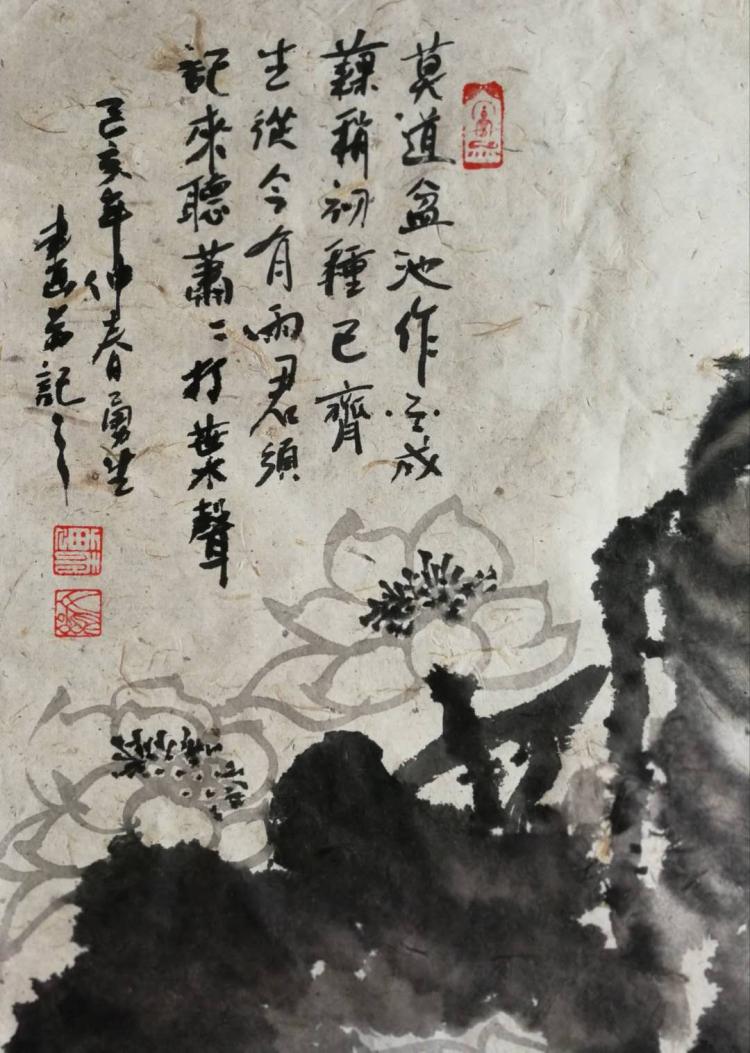 莫道盆池作不成
藕稍初種已齊
生從今有雨君須
記來聽蕭〻打葉聲
己亥年仲春勇生
畫并記之